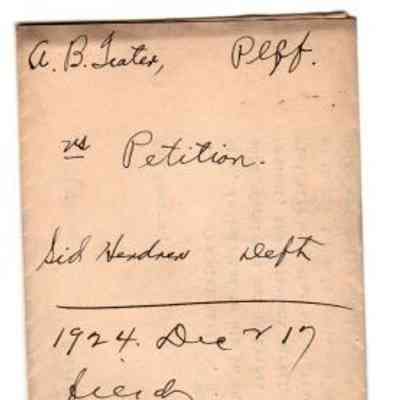 A. B. Teater, Plff.
vs Petition.
Sid Hendren Deft
1924. Dec 17
Filed